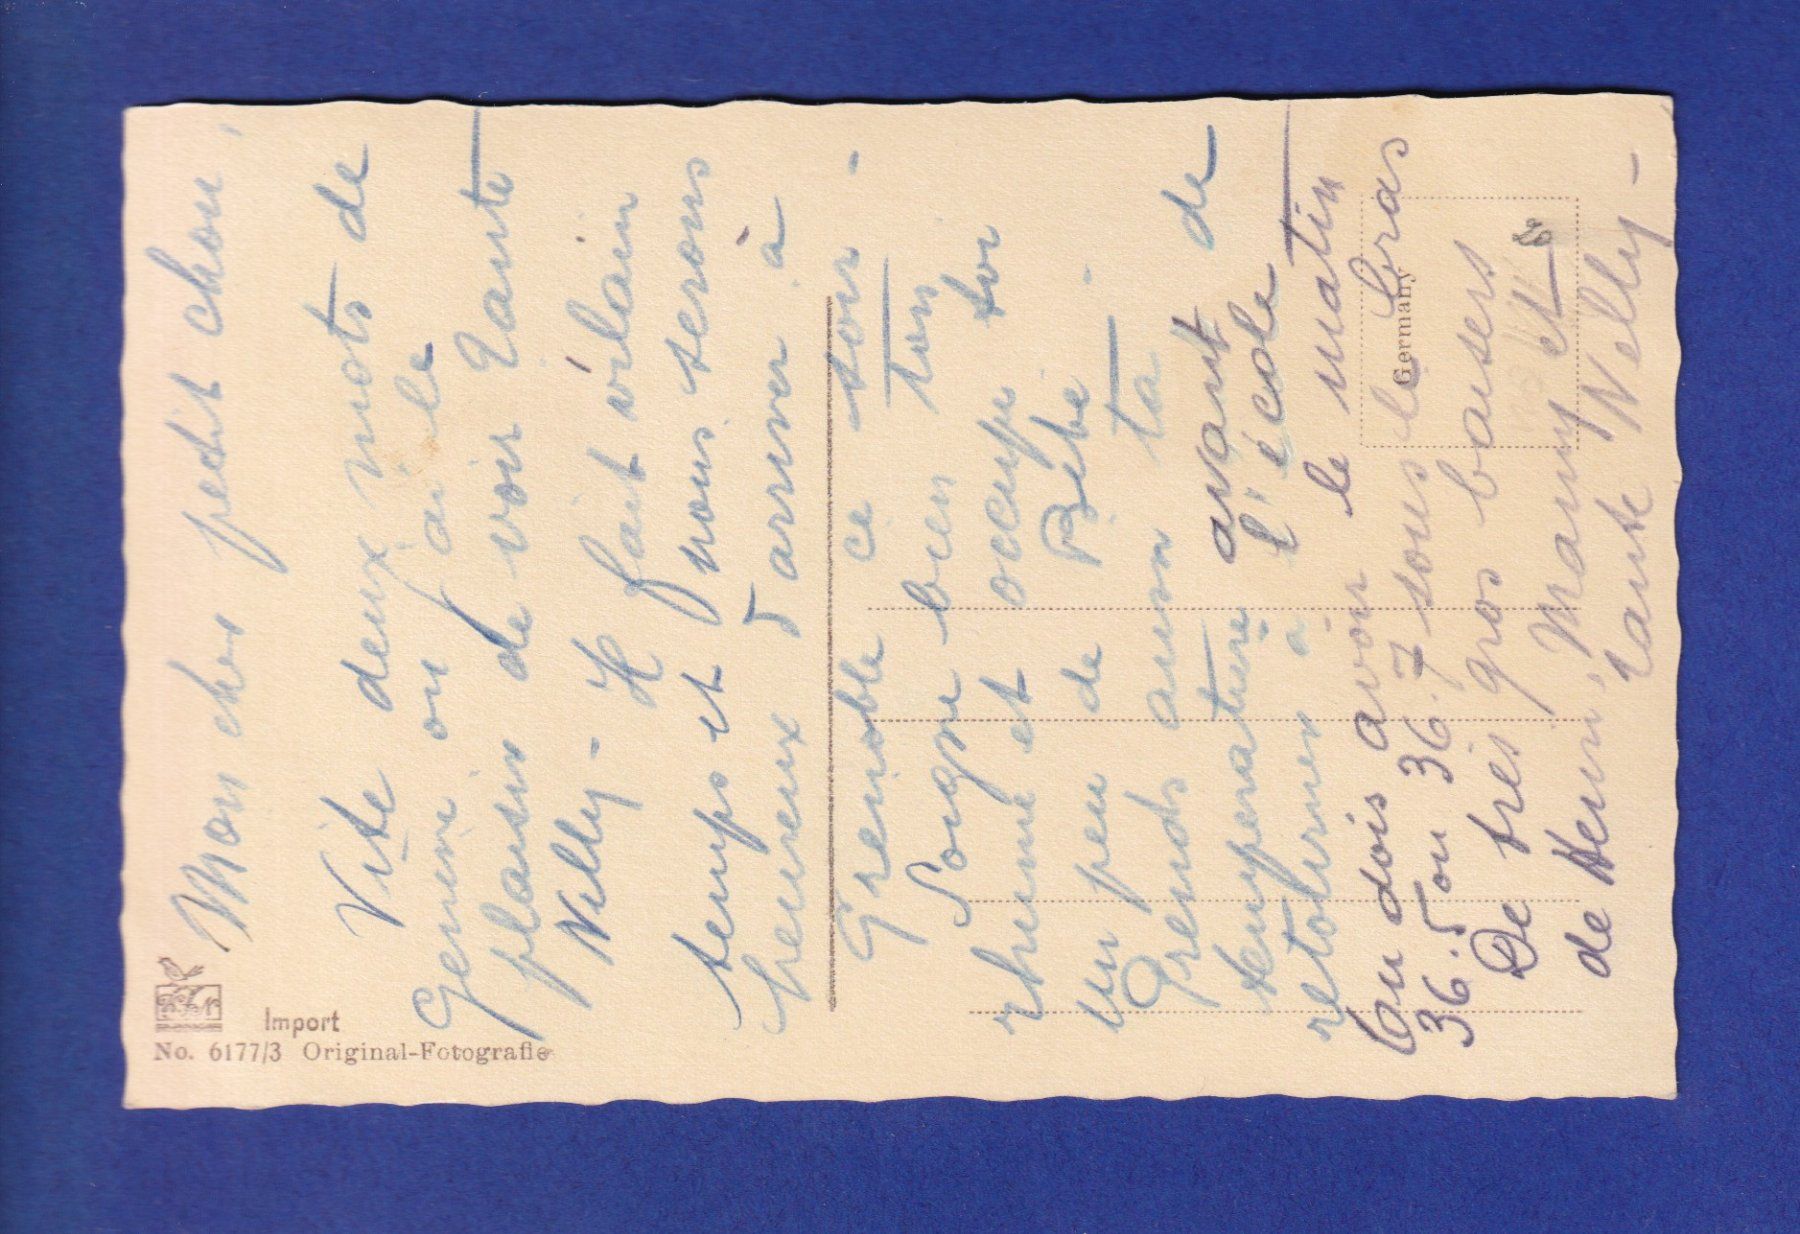 Mon cher petit chou,
Vite deux mots de
Genève où j'ai le
plaisir de voir Tante
Nelly - Il fait vilain
temps et nous serons
heureux d'arriver à
Grenoble ce soir -
Soigne bien ton
rhume et occupe toi
un peu de Bébé -
Prends aussi ta de
température avant
retournes à l'école
Tu dois avoir le matin
36.5 ou 36.7 sous le bras
De très gros baisers
de Henri, Mamy et
tante Nelly -
Import
No. 6177/3 Original-Fotografie
Germany